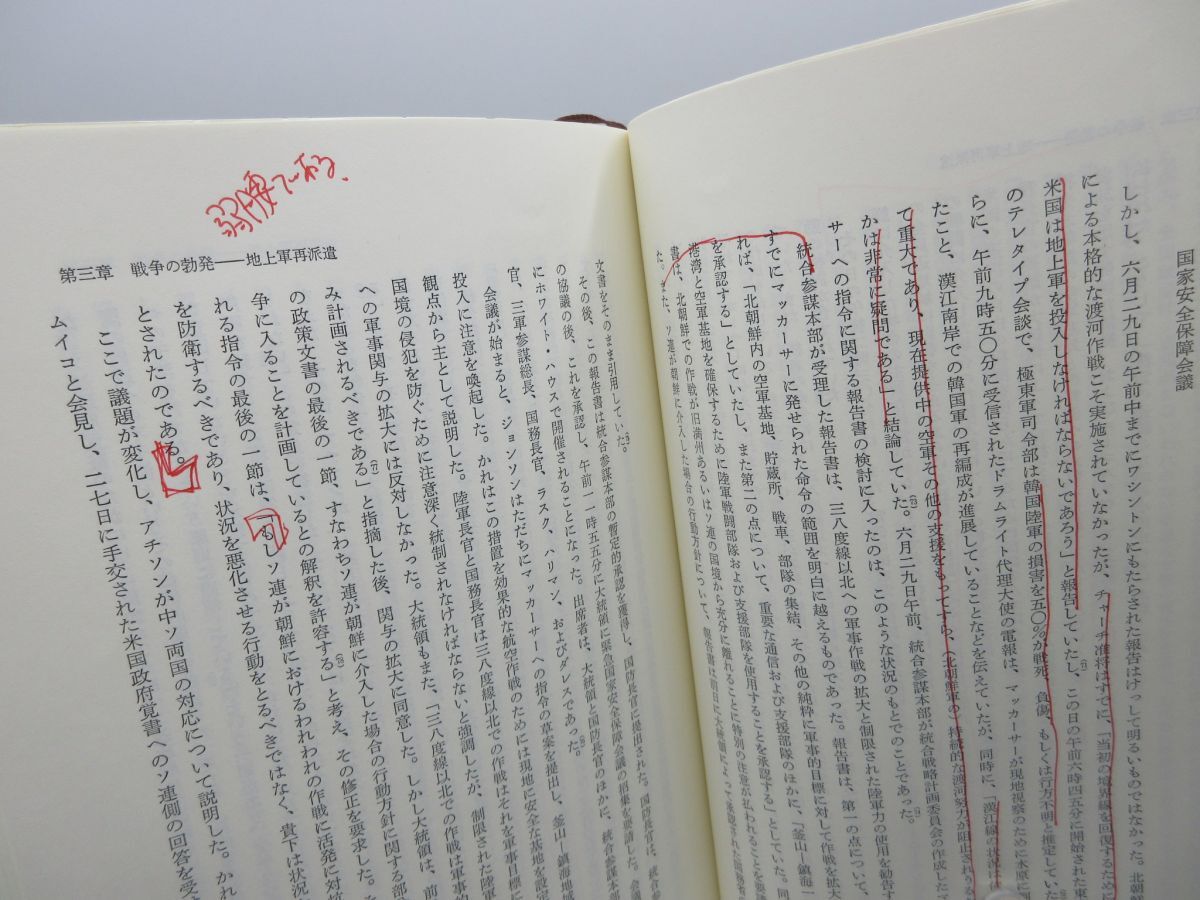 国家安全保障会議
しかし、六月二九日の午前中までにワシントンにもたらされた報告はけっして明るいものではなかった。北朝鮮
による本格的な渡河作戦こそ実施されていなかったが、チャーチ准将はすでに、「当初の境界線を回復するために
米国は地上軍を投入しなければならないであろう」と報告していたし、この日の午前六時四五分に開始された東
のテレタイプ会談で、極東軍司令部は韓国陸軍の損害を五〇%が戦死、負傷、もしくは行方不明と推定していた
らに、午前九時五〇分に受信されたドラムライト代理大使の電報は、マッカーサーが現地視察のために水原に到
たこと、漢江南岸での韓国軍の再編成が進展していることなどを伝えていたが、同時に、「漢江線の状況は
て重大であり、現在提供中の空軍その他の支援をもってすら、（北朝鮮軍の）持続的な渡河努力が阻止されうる
かは非常に疑問である」と結論していた。六月二九日午前、統合参謀本部が統合戦略計画委員会の作成した
サーへの指令に関する報告書の検討に入ったのは、このような状況のもとでのことであった。
統合参謀本部が受理した報告書は、三八度線以北への軍事作戦の拡大と制限された陸軍力の使用を勧告す
すでにマッカーサーに発せられた命令の範囲を明白に越えるものであった。報告書は、第一の点について、
れば、「北朝鮮内の空軍基地、貯蔵所、戦車、部隊の集結、その他の純粋に軍事的目標に対して作戦を拡大
を承認する」としていたし、また第二の点について、重要な通信および支援部隊のほかに、「釜山―鎮海―
港湾と空軍基地を確保するために陸軍戦闘部隊および支援部隊を使用することを承認する」としていた。同
書は、北朝鮮での作戦が旧満州あるいはソ連の国境から充分に離れることに特別の注意が払われることを要
た。また、ソ連が朝鮮に介入した場合の行動方針について、報告書は前日に大統領によって承認された国務省
弱腰である。
第三章　戦争の勃発――地上軍再派遣
文書をそのまま引用していた。
その後、この報告書は統合参謀本部の暫定的承認を獲得し、国防長官に提出された。国防長官は、統合参
の協議の後、これを承認し、午前一一時五五分に大統領に緊急国家安全保障会議の招集を要請した。会議
にホワイト・ハウスで開催されることになった。出席者は、大統領と国防長官のほかに、統合参謀本部
官、三軍参謀総長、国務長官、ラスク、ハリマン、およびダレスであった。
会議が始まると、ジョンソンはただちにマッカーサーへの指令の草案を提出し、釜山―鎮海地域
投入に注意を喚起した。かれはこの措置を効果的な航空作戦のためには現地に安全な基地を設定
観点から主として説明した。陸軍長官と国務長官は三八度線以北での作戦はそれを軍事目標に
国境の侵犯を防ぐために注意深く統制されなければならないと強調したが、制限された陸軍
への軍事関与の拡大には反対しなかった。大統領もまた、「三八度線以北での作戦は軍事的
み計画されるべきである」と指摘した後、関与の拡大に同意した。しかし大統領は、前
の政策文書の最後の一節、すなわちソ連が朝鮮に介入した場合の行動方針に関する部
争に入ることを計画しているとの解釈を許容する」と考え、その修正を要求した。
れる指令の最後の一節は、「もしソ連が朝鮮におけるわれわれの作戦に活発に対抗
を防衛するべきであり、状況を悪化させる行動をとるべきではなく、貴下は状況
とされたのである。
ここで議題が変化し、アチソンが中ソ両国の対応について説明した。かれ
ムイコと会見し、二七日に手交された米国政府覚書へのソ連側の回答を受